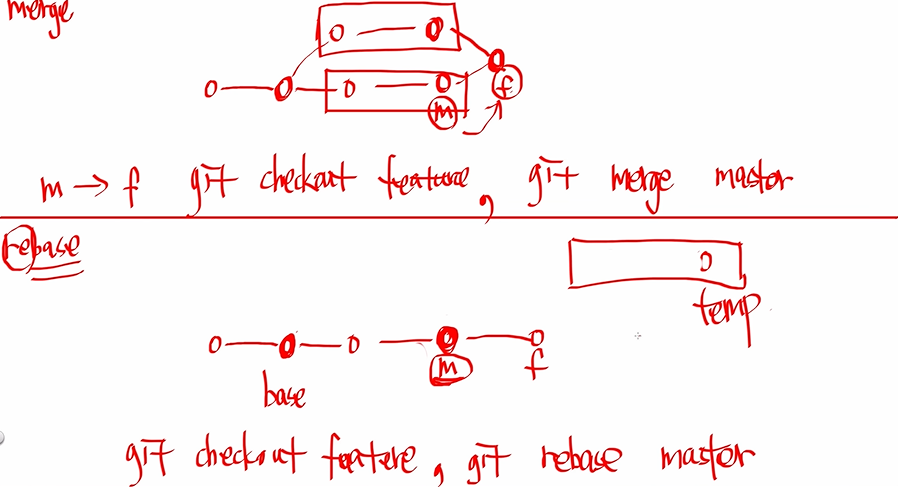 merge
f
m
m → f git checkout feature, git merge master
rebase
temp
m f
base
git checkout feature, git rebase master